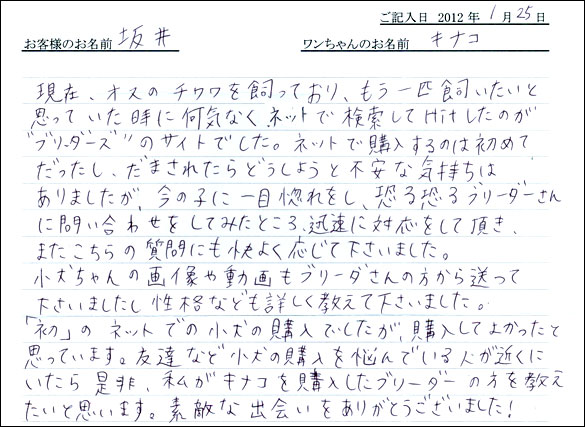 ご記入日 2012年 1月 25日
お客様のお名前 坂井 ワンちゃんのお名前 キナコ
現在、オスのチワワを飼っており、もう一匹飼いたいと
思っていた時に何気なくネットで検索してHitしたのが
"ブリーダーズ"のサイトでした。ネットで購入するのは初めて
だったし、だまされたらどうしようと不安な気持ちは
ありましたが、今の子に一目惚れをし、恐る恐るブリーダーさん
に問い合わせをしてみたところ、迅速に対応をして頂き、
またこちらの質問にも快よく応じて下さいました。
小犬ちゃんの画像や動画もブリーダさんの方から送って
下さいましたし性格なども詳しく教えて下さいました。
「初」のネットでの小犬の購入でしたが、購入してよかったと
思っています。友達など小犬の購入を悩んでいる人が近くに
いたら是非、私がキナコを購入したブリーダーの方を教え
たいと思います。素敵な出会いをありがとうございました!